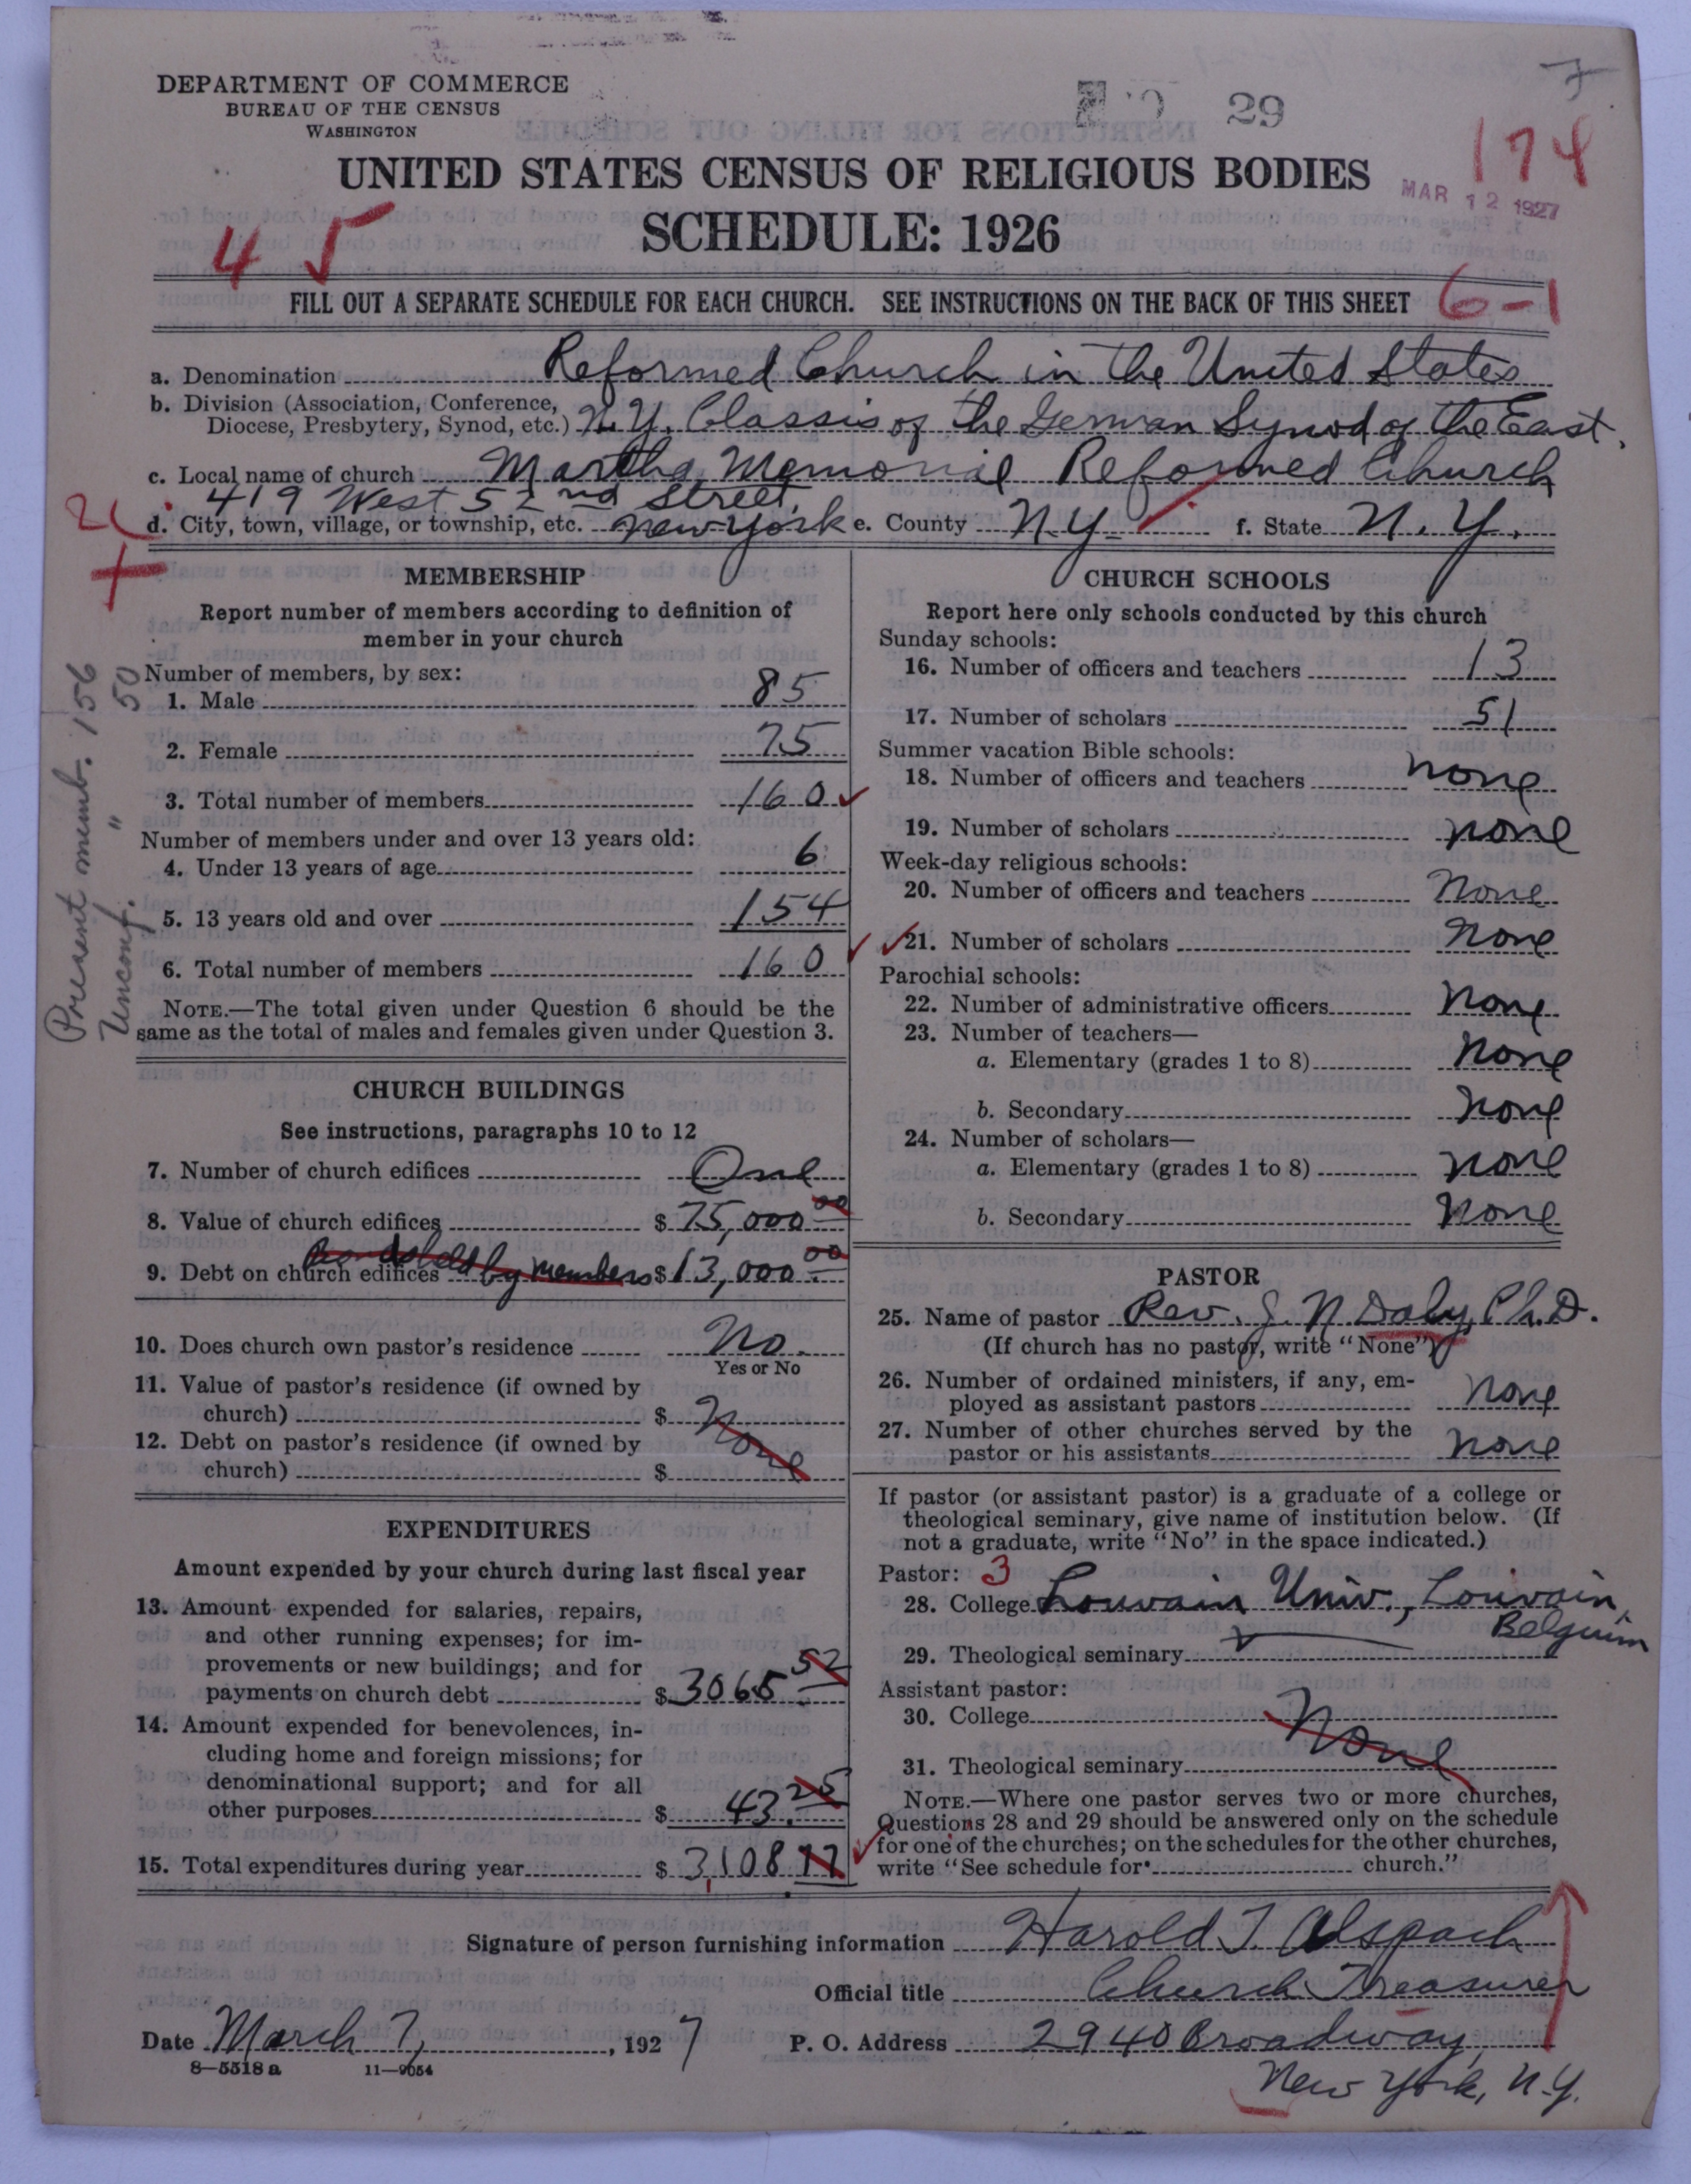 DEPARTMENT OF COMMERCE
BUREAU OF THE CENSUS
WASHINGTON
29
174
UNITED STATES CENSUS OF RELIGIOUS BODIES
MAR 12 1927
SCHEDULE: 1926
45
FILL OUT A SEPARATE SCHEDULE FOR EACH CHURCH. SEE INSTRUCTIONS ON THE BACK OF THIS SHEET
6-1
a. Denomination Reformed Church in the United States
b. Division (Association, Conference,
Diocese, Presbytery, Synod, etc.) N.Y. Classis of the German Synod of the East.
c. Local name of church Martha Memorial Reformed Church
419 West 52nd Street,
d. City, town, village, or township, etc. New York e. County N.Y. f. State N.Y.
Present memb. 156
Unconf. " 50
MEMBERSHIP
Report number of members according to definition of
member in your church
Number of members, by sex:
1. Male 85
2. Female 75
3. Total number of members 160
Number of members under and over 13 years old:
4. Under 13 years of age 6
5. 13 years old and over 154
6. Total number of members 160
NOTE.—The total given under Question 6 should be the
same as the total of males and females given under Question 3.
CHURCH BUILDINGS
See instructions, paragraphs 10 to 12
7. Number of church edifices One
8. Value of church edifices $75,000 00
9. Debt on church edifices Bonds held by members $13,000 00
10. Does church own pastor's residence No.
Yes or No
11. Value of pastor's residence (if owned by
church) $ None
12. Debt on pastor's residence (if owned by
church) $
EXPENDITURES
Amount expended by your church during last fiscal year
13. Amount expended for salaries, repairs,
and other running expenses; for im-
provements or new buildings; and for
payments on church debt $3065 52
14. Amount expended for benevolences, in-
cluding home and foreign missions; for
denominational support; and for all
other purposes $ 43.25
15. Total expenditures during year $3,108 77
CHURCH SCHOOLS
Report here only schools conducted by this church
Sunday schools:
16. Number of officers and teachers 13
17. Number of scholars 51
Summer vacation Bible schools:
18. Number of officers and teachers none
19. Number of scholars none
Week-day religious schools:
20. Number of officers and teachers None
21. Number of scholars None
Parochial schools:
22. Number of administrative officers None
23. Number of teachers—
a. Elementary (grades 1 to 8) None
b. Secondary None
24. Number of scholars—
a. Elementary (grades 1 to 8) None
b. Secondary None
PASTOR
25. Name of pastor Rev. J. N Daly, Ph.D.
(If church has no pastor, write "None")
26. Number of ordained ministers, if any, em-
ployed as assistant pastors None
27. Number of other churches served by the
pastor or his assistants None
If pastor (or assistant pastor) is a graduate of a college or
theological seminary, give name of institution below. (If
not a graduate, write "No" in the space indicated.)
Pastor: 3
28. College Louvain Univ., Louvain,
Belguim
29. Theological seminary
Assistant pastor:
30. College None
31. Theological seminary
NOTE.—Where one pastor serves two or more churches,
Questions 28 and 29 should be answered only on the schedule
for one of the churches; on the schedules for the other churches,
write "See schedule for church."
Signature of person furnishing information Harold T. Alspach
Official title Church Treasurer
Date March 7, 1927 P. O. Address 2940 Broadway,
8—5518 a 11—9054
New York, N.Y.